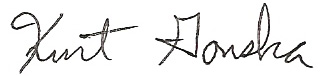 Kurt Gonska